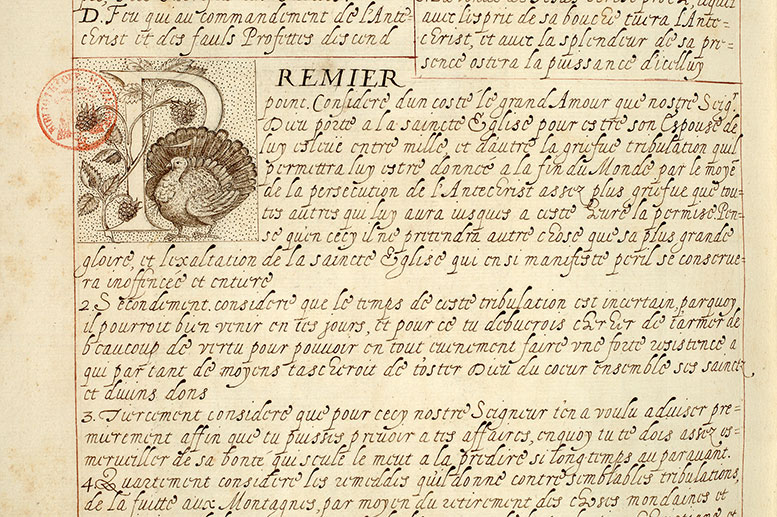 D. Feu qui au commandement de l'Ante=
christ et des fauls Profettes descend
auec l'esprit de sa bouche tuera l'Ante=
christ, et auec la splendeur de sa pre=
sence ostera la puissance d'icelluy
PREMIER
point. Considere d'un coste le grand Amour que nostre Seigr
Dieu porte a la saincte Eglise pour estre son Espouse de
luy esleue entre mille, et d'autre la griefue tribulation quil
permettra luy estre donnee a la fin du Monde, par le moyē
de la persecution de l'AnteChrist assez plus griefue que tou=
tes autres qui luy aura iusques a ceste heure la permise. Pen=
se qu'en cecy il ne pretendra autre chose que sa plus grande
gloire, et l'exaltation de la saincte Eglise qui en si manifeste peril se conserue=
ra inoffencee et entiere
2. Secondement considere que le temps de ceste tribulation est incertain, parquoy
il pourroit bien venir en tes jours, et pour ce tu debuerois chercher de t'armer de
beaucoup de vertu pour pouuoir en tout euenement faire vne forte resistence a
qui par tant de moyens tascheroit de t'oster Dieu du coeur ensemble ses sainctz
et diuins dons
3. Tiercement considere que pour cecy nostre Seigneur t'en a voulu aduiser pre=
mierement affin que tu puisses preuoir a tes affaires, enquoy tu te dois assez es=
merueiller de sa bonte qui seule le meut a la predire si long temps au parauant.
4. Quartement considere les remeddes quil donne contre semblables tribulations,
de la fuitte aux Montagnes, par moyen du retirement des choses mondaines et